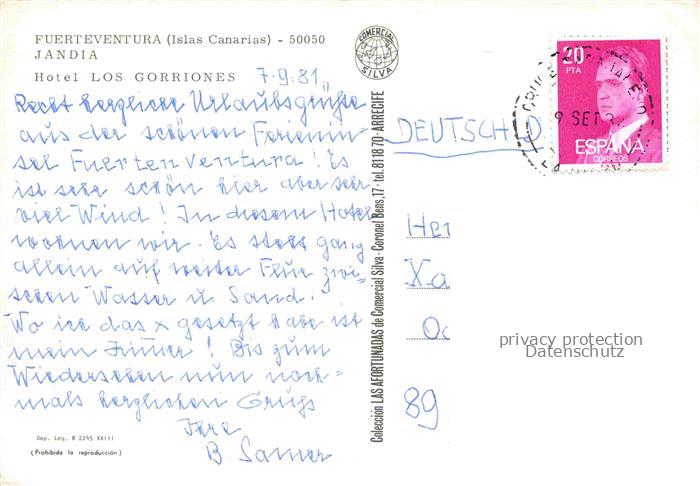 FUERTEVENTURA (Islas Canarias) - 50050
JANDIA
Hotel LOS GORRIONES 7.9.81
Recht herzliche Urlaubsgrüße
aus der schönen Ferienin-
sel Fuertenventura! Es
ist sehr schön hier aber sehr
viel Wind! In diesem Hotel
wohnen wir. Es steht ganz
allein auf weiter Flur zwi-
schen Wasser u. Sand.
Wo ich das x gesetzt habe ist
mein Zimmer! Bis zum
Wiedersehen nun noch=
mals herzlichen Gruß
Ihre
B.
Dep. Leg. B 2245 XXIII
(Prohibida la reproducción)
COMERCIAL
SILVA
Colección LAS AFORTUNADAS de Comercial Silva - Coronel Bens, 17 - tel. 81 18 70 - ARRECIFE
20
PTA
ESPAÑA
CORREOS
9 SET
DEUTSCHLD.
Her
Xa
Oc
89
privacy protection
Datenschutz